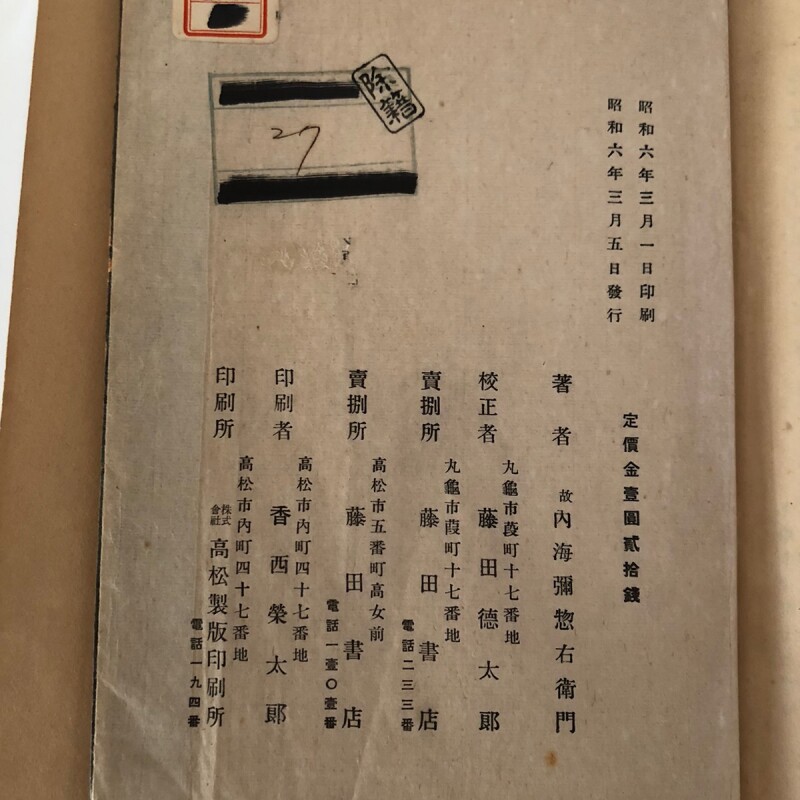 昭和六年三月一日印刷
昭和六年三月五日發行
定價金壹圓貳拾錢
著者 故 內海彌惣右衛門
丸龜市葭町十七番地
校正者 藤田德太郎
丸龜市葭町十七番地
賣捌所 藤田書店
電話二三三番
高松市五番町高女前
賣捌所 藤田書店
電話一壹〇壹番
高松市內町四十七番地
印刷者 香西榮太郎
高松市內町四十七番地
印刷所 株式會社 高松製版印刷所
電話一九四番
除籍
27